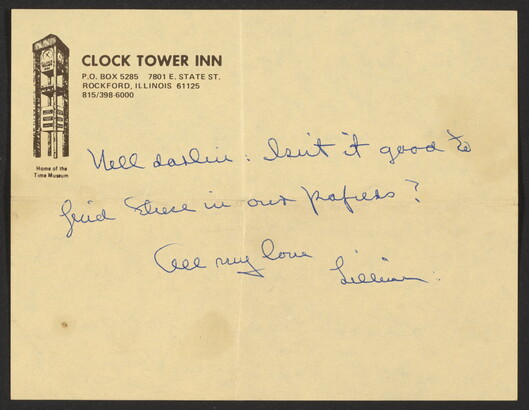 CLOCK TOWER INN
P.O. BOX 5285 7801 E. STATE ST.
ROCKFORD, ILLINOIS 61125
815/398-6000
Home of the
Time Museum
Nell darlin: Isn't it good to
find these in our papers?
All my love
Lillian